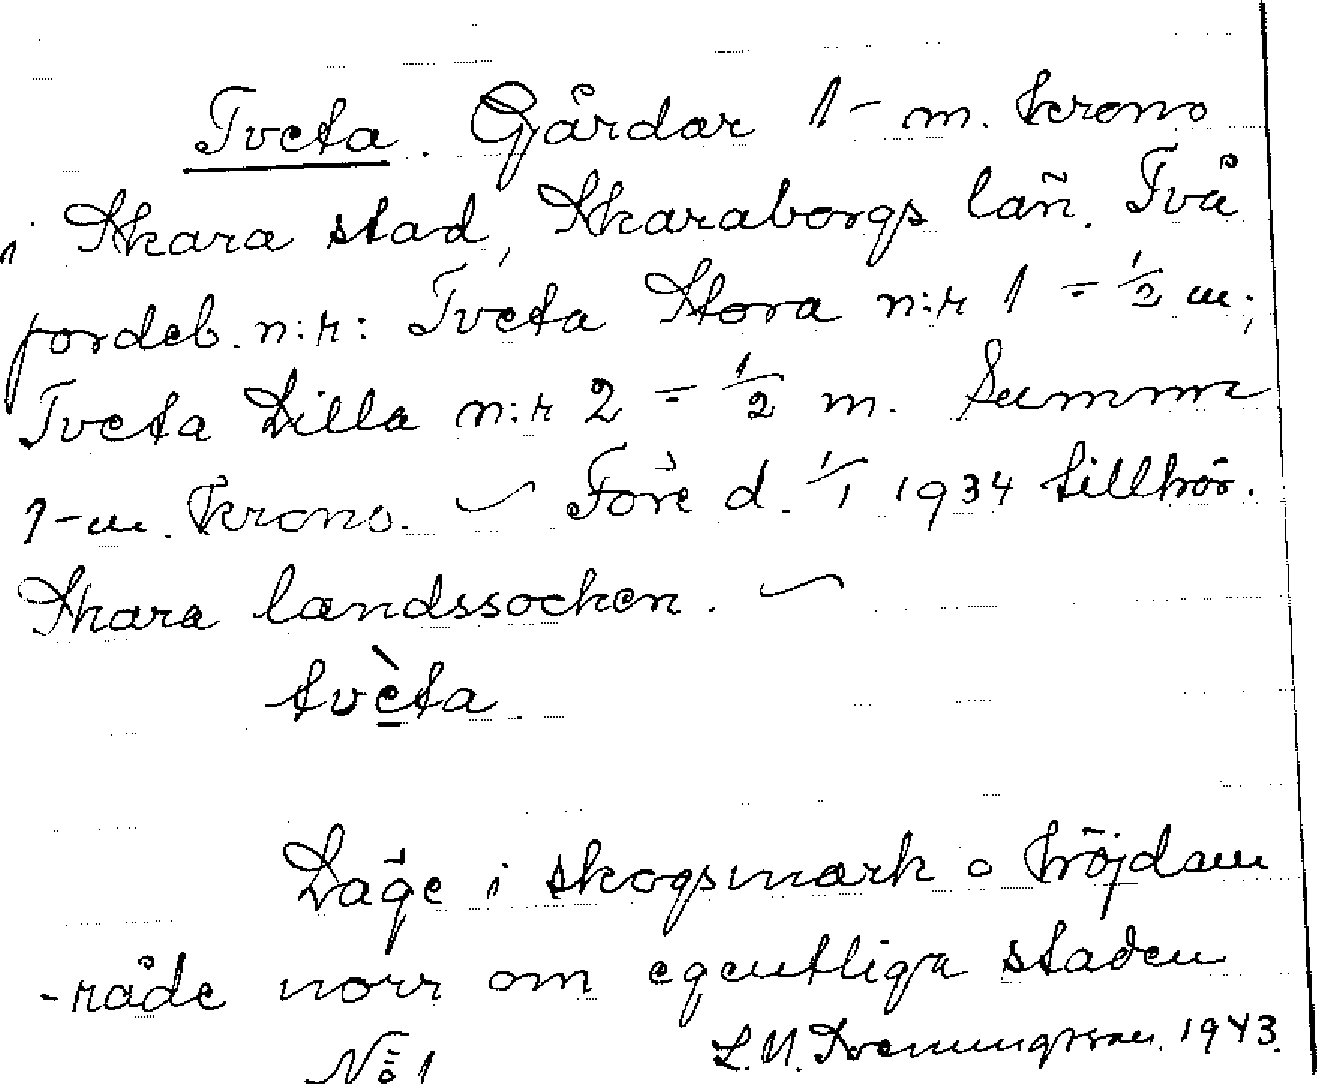 Tveta. Gårdar 1 - m. krono
i Skara stad, Skaraborgs län. Två
jordeb. n:r: Tveta Stora n:r 1 = 1/2 m;
Tveta Lilla n:r 2 = 1/2 m. Summa
1 - m. krono. — Före d. 1/1 1934 tillhör.
Skara landssocken. —
tvèta
Läge i skogsmark o höjdom
-råde norr om egentliga staden
No 1 L. N. 1943.